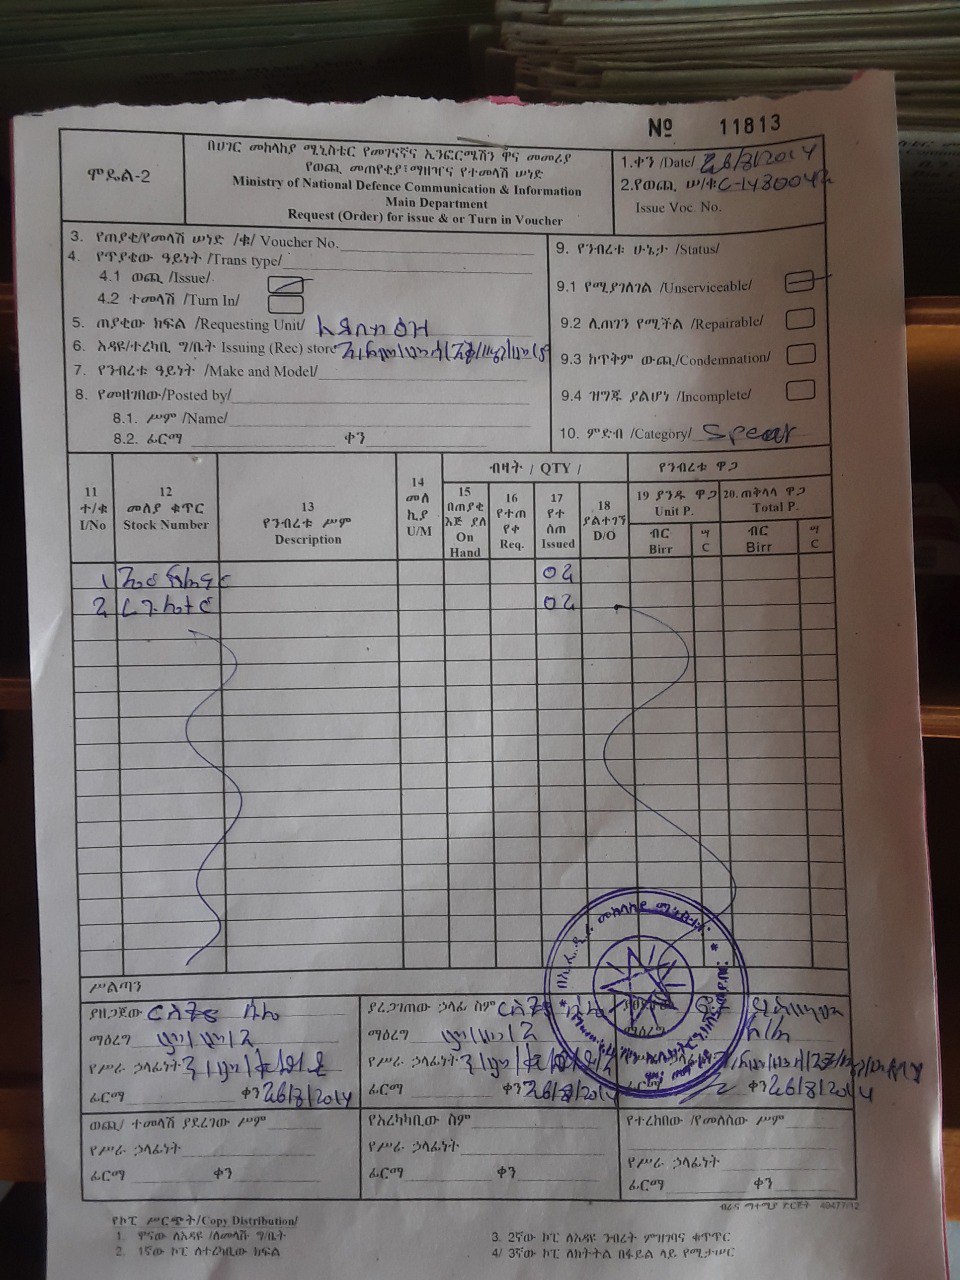 № 11813
ሞዴል-2
በሀገር መከላከያ ሚኒስቴር የመገናኛና ኢንፎርሜሽን ዋና መመሪያ
የወጪ መጠየቂያ፣ማዘዣና የተመላሽ ሠነድ
Ministry of National Defence Communication & Information
Main Department
Request (Order) for issue & or Turn in Voucher
1.ቀን /Date/ 26/8/2014
2.የወጪ ሠ/ቁ C-1430042
Issue Voc. No.
3. የጠያቂ/የመላሽ ሠነድ /ቁ/ Voucher No.
4. የጥያቄው ዓይነት /Trans type/
4.1 ወጪ /Issue/
4.2 ተመላሽ /Turn In/
5. ጠያቂው ክፍል /Requesting Unit/
6. አዳዩ/ተረካቢ ግ/ቤት Issuing (Rec) store
7. የንብረቱ ዓይነት /Make and Model/
8. የመዘገበው/Posted by/
8.1. ሥም /Name/
8.2. ፊርማ ቀን
9. የንብረቱ ሁኔታ /Status/
9.1 የሚያገለገል /Unserviceable/
9.2 ሊጠገን የሚችል /Repairable/
9.3 ከጥቅም ውጪ/Condemnation/
9.4 ዝግጁ ያልሆነ /Incomplete/
10. ምድብ /Category/ Spear
11 ተ/ቁ I/No
12 መለያ ቁጥር Stock Number
13 የንብረቱ ሥም Description
14 መለኪያ U/M
ብዛት / QTY /
15 በጠያቂ እጅ ያለ On Hand
16 የተጠየቀ Req.
17 የተሰጠ Issued
18 ያልተገኘ D/O
የንብረቱ ዋጋ
19 ያንዱ ዋጋ Unit P.
20. ጠቅላላ ዋጋ Total P.
ብር Birr ሣ C
ብር Birr ሣ C
1 02
2 02
ሥልጣን
ያዘጋጀው
ማዕረግ
የሥራ ኃላፊነት
ፊርማ ቀን 26/8/2014
ያረጋገጠው ኃላፊ ስም
ማዕረግ
የሥራ ኃላፊነት
ፊርማ ቀን 26/8/2014
ፊርማ ቀን 26/8/2014
ወጪ/ ተመላሽ ያደረገው ሥም
የሥራ ኃላፊነት
ፊርማ ቀን
የአረካካቢው ስም
የሥራ ኃላፊነት
ፊርማ ቀን
የተረከበው /የመለሰው ሥም
የሥራ ኃላፊነት
ፊርማ ቀን
ብራና ማተሚያ ድርጅት 49477/12
የኮፒ ሥርጭት/Copy Distribution/
1. ዋናው ለአዳዩ /ለመላሹ ግ/ቤት
2. 1ኛው ኮፒ ለተረካቢው ክፍል
3. 2ኛው ኮፒ ለአዳዩ ንብረት ምዝገባና ቁጥጥር
4/ 3ኛው ኮፒ ለክትትል በፋይል ላይ የሚታሠር